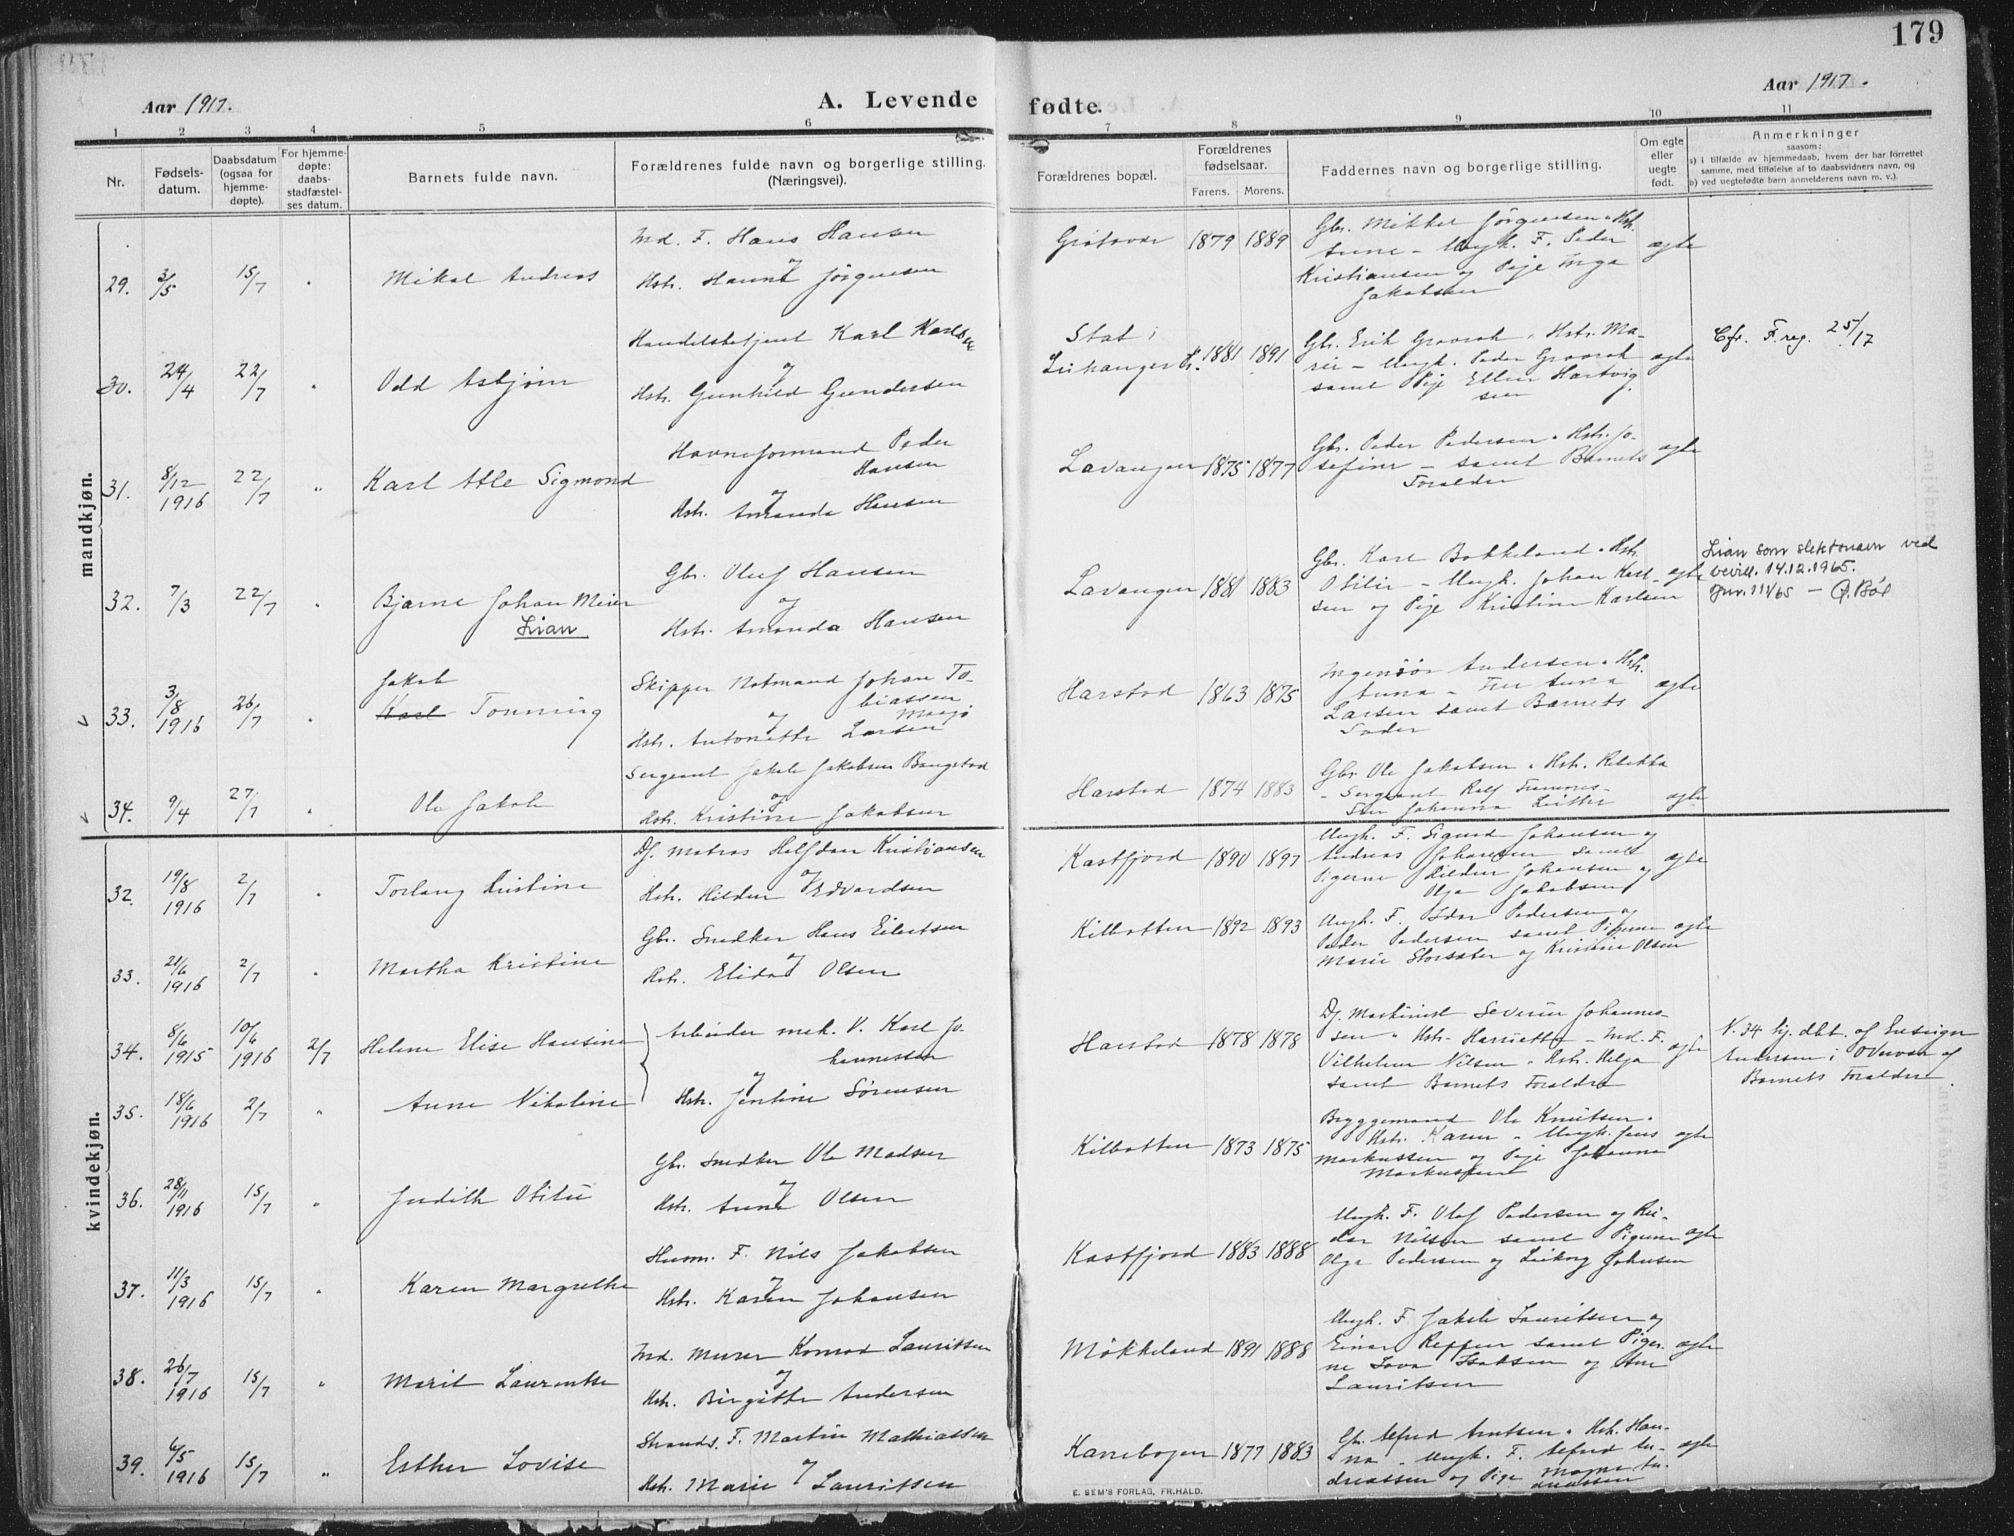 179
Aar 1917.
A. Levende
fødte.
Aar 1917.
1 2 3 4 5 6 7 8 9 10 11
Nr.
Fødsels-
datum.
Daabsdatum
(ogsaa for
hjemme-
døpte).
For hjemme-
døpte:
daabs-
stadfæstel-
ses datum.
Barnets fulde navn.
Forældrenes fulde navn og borgerlige stilling.
(Næringsvei).
Forældrenes bopæl.
Forældrenes
fødselsaar.
Farens. Morens.
Faddernes navn og borgerlige stilling.
Om egte
eller
uegte
født.
Anmerkninger
saasom:
a) i tilfælde av hjemmedaab, hvem der har forrettet
samme, med tilføielse af to daabsvidners navn, og
b) ved uegtefødte barn anmelderens navn m. v.).
mandkjøn.
29. 3/5 15/7 Mikal Andreas
Ind. F. Hans Hansen
og
Hstr. Hanna Jørgensen
1879 1889
Gbr. Mikkel Jørgensen, Hstr.
Anne – Ungk. F. Peder
Kristiansen og Pige Inga
Jakobsen
egte
30. 24/4 22/7 Odd Asbjørn
Handelsbetjent Karl Karlsen
og
Hstr. Gunhild Gundersen
1881 1891
Gbr. Erik Gravrok, Hstr. Ma-
rie – Ungk. Peder Gravrok
samt Pige Ellen Hartvig-
sen
egte
Cfr. F. reg. 25/17
31. 8/12 1916 22/7 Karl Atle Sigmond
Havneformand Peder
Hansen
og
Hstr. Amanda Hansen
Lavangen 1875 1877
Gbr. Peder Pedersen, Hstr. Jo-
sefine – samt Barnets
Foreldre
egte
32. 7/3 22/7 Bjarne Johan Meier
Lian
Gbr. Oluf Hansen
og
Hstr. Amanda Hansen
Lavangen 1881 1883
Gbr. Karl Bakkeland, Hstr.
Otilie – Ungk. Johan Karl-
sen og Pige Kristine Karlsen
egte
Lian som slektsnavn ved
bevill. 14.12.1965.
Jnr. 111/65 – Q. Bøe
33. 3/8 1916 26/7 Jakob
Karl Tonning
Skipper Notmand Johan To-
biassen
og
Hstr. Antonette Larsen
Harstad 1863 1875
Ingeniør Andersen, Hstr.
Anna – Fru Anna
Larsen samt Barnets
Fader
egte
34. 9/4 27/7 Ole Jakob
Sergeant Jakob Jakobsen Bangstad
og
Hstr. Kristine Jakobsen
Harstad 1874 1883
Gbr. Ole Jakobsen, Hstr. Rebekka
– Sergeant Rolf
Johanna
egte
kvindekjøn.
32. 19/8 1916 2/7 Torlaug Kristine
Df. Matros Halfdan Kristiansen
og
Hstr. Hildur Edvardsen
Kastfjord 1890 1897
Ungk. F. Sigurd Johansen og
Andreas Johansen samt
Pigerne Hildur Johansen og
Olga Jakobsen
egte
33. 21/6 1916 2/7 Martha Kristine
Gbr. Snedker Hans Eilertsen
og
Hstr. Elida Olsen
Kilbotten 1892 1893
Ungk. F. Idar Pedersen og
Peder Pedersen samt Pigerne
Marie Storsæter og Kristine Olsen
egte
34. 8/6 1915 10/6 1916 2/7 Helene Elise Hansine
35. 18/6 1916 2/7 Anne Nikoline
Arbeider mek. V. Karl Jo-
hannessen
og
Hstr. Jentine Sørensen
Harstad 1878 1878
Df. Maskinist Severin Johannes-
sen, Hstr. Harriette – Ind. F.
Vilhelm Nilsen, Hstr. Helga
samt Barnets Foreldre
egte
N. 34 hj. dbt. af Evangr
Andersen i Overvær af
Barnets Foreldre.
36. 28/11 1916 15/7 Judith Otilie
Gbr. Snedker Ole Madsen
og
Hstr. Anna Olsen
Kilbotten 1873 1875
Byggemand Ole Knutsen,
Hstr. Karen – Ungk. Jens
Markussen og Pige Johanna
Markussen
egte
37. 11/3 1916 15/7 Karen Margrethe
Husm. F. Nils Jakobsen
og
Hstr. Karen Johansen
Kastfjord 1883 1888
Ungk. F. Olaf Pedersen og Rei-
dar Nilsen samt Pigerne
Olga Pedersen og Leikny Johansen
egte
38. 26/7 1916 15/7 Marit Laurentse
Ind. Murer Konrad Lauritsen
og
Hstr. Birgitte Andersen
Møkkeland 1891 1888
Ungk. F. Jakob Lauritsen og
Einar Reppen samt Piger-
ne Lova Isaksen og Ane
Lauritsen
egte
39. 6/5 1916 15/7 Esther Lovise
Strands. F. Martin Mathiassen
og
Hstr. Marie Lauritsen
Kanebogen 1877 1883
Gbr. Alfred Arntsen, Hstr. Han-
na – Ungk. F. Alfred An-
dreassen og Pige Magna An-
dreassen
egte
E. SEM'S FORLAG, FR.HALD.